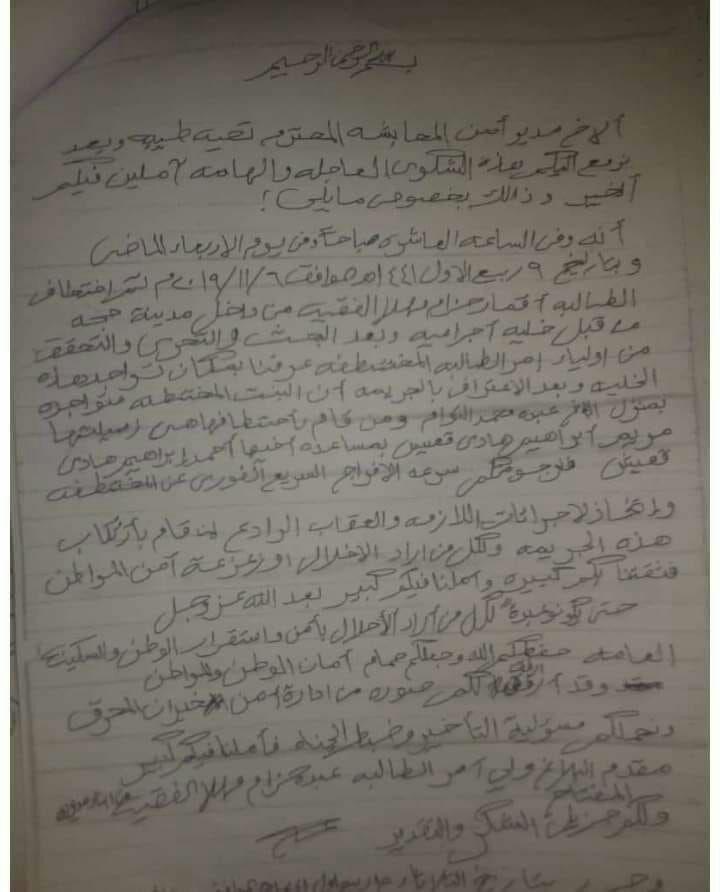 بسم الله الرحمن الرحيم
ألاخ مدير أمن المحابشه المحترم تحيه طيبه وبعد
نرفع اليكم بهذه الشكوى العاجله والهامه آملين فيكم
الخير وذالك بخصوص مايلي!
أنه وفي الساعه العاشره صباحاً وفي يوم الاربعاء الماضي
وبتاريخ ٩ ربيع الاول ١٤٤١هـ الموافق ٢٠١٩/١١/٦م تم إختطاف
الطالبه أقمار حزام الفقيه من داخل مدينة حجه
من قبل خليه أجراميه وبعد البحث والتحري والتحقق
من اولياء امر الطالبه المختطفه عرفنا بمكان تواجد هذه
الخليه وبعد الاعتراف بالجريمه أن البنت المختطفه متواجده
بمنزل الاخ عبده محمد ومن قام بأختطافها هي زميلتها
مريم أبراهيم هادي قعيش بمساعده أخيها أحمد إبراهيم هادي
قعيش فنرجو منكم سرعه الافراج السريع الفوري عن المختطفه
وإتخاذ لاجرائات اللازمه والعقاب الرادع لمن قام بأرتكاب
هذه الجريمه ولكل من اراد الاخلال او زعزعة أمن المواطن
فثقتنا بكم كبيره وأملنا فيكم كبير بعد الله عز وجل
حتى يكونو عبرة لكل من أراد الأخلال بأمن واستقرار الوطن والسكينه
العامه حفظكم الله وجعلكم صمام أمان الوطن والمواطن
وقد أرفقنا لكم صوره من ادارة أمن خيران المحرق
ونحملكم مسؤلية التأخير وضبط الجناه فأملنا فيكم كبير
مقدم البلاغ ولي أمر الطالبه عبده حزام الفقيه
المفتاح
ولكم جزيل الشكر والتقدير